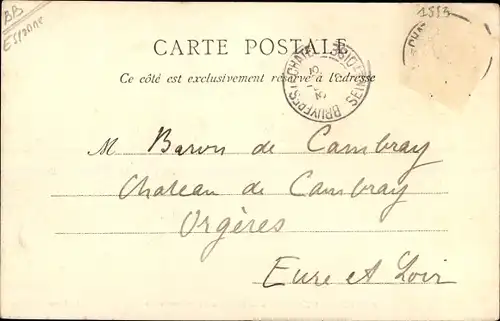 BB
1553
CARTE POSTALE
Ce côté est exclusivement réservé à l'adresse
BRUYÈRES-LE-CHATEL
M Baron de Cambray
Chateau de Cambray
Orgères
Eure et Loir